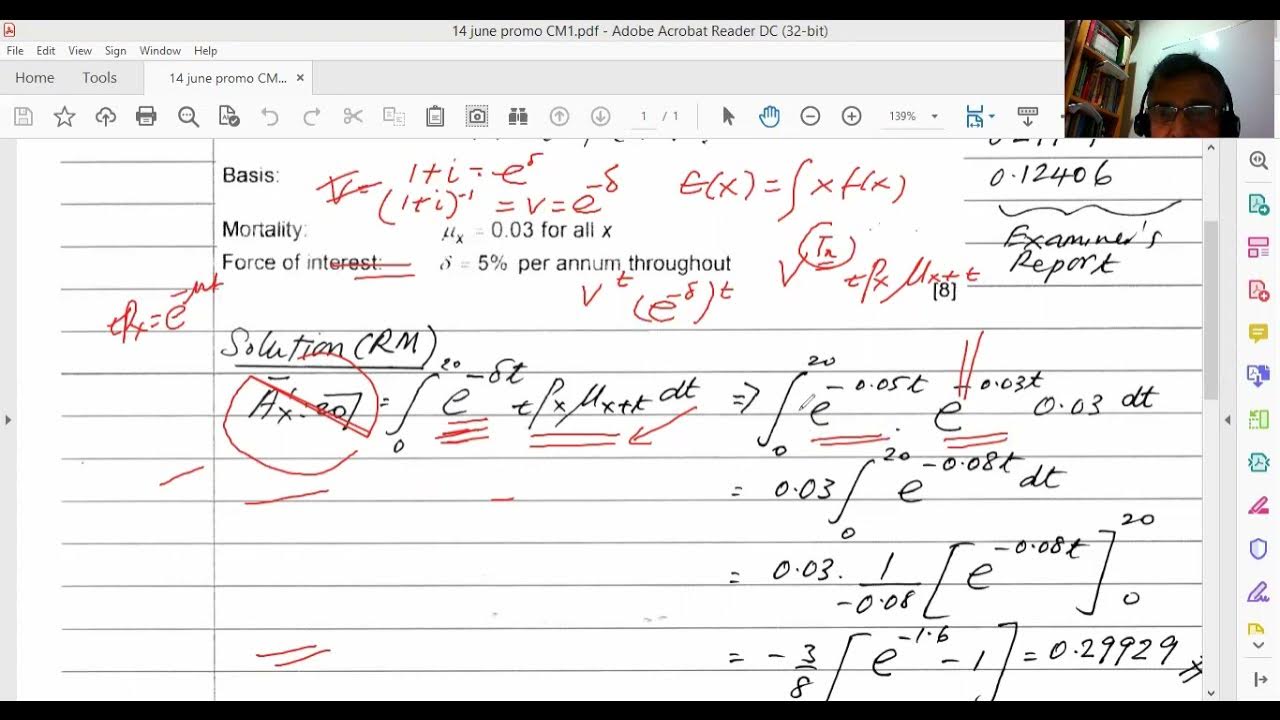 14 june promo CM1.pdf - Adobe Acrobat Reader DC (32-bit)
File Edit View Sign Window Help
Home Tools 14 june promo CM... ×
1 / 1 139%
Basis:
1+i = e^δ
(1+i)^-1 = v = e^-δ
E(x) = ∫ x f(x)
0.12406
Examiner's
Report
Mortality: μx = 0.03 for all x
Force of interest: δ = 5% per annum throughout
v^Tx tPx μx+t
[8]
v^t (e^-δ)^t
tPx = e^-μt
Solution (RM)
Āx:20 = ∫0^20 e^-δt tPx μx+t dt => ∫0^20 e^-0.05t . e^-0.03t 0.03 dt
= 0.03 ∫0^20 e^-0.08t dt
= 0.03 . 1/-0.08 [e^-0.08t]0^20
= -3/8 [e^-1.6 - 1] = 0.29929